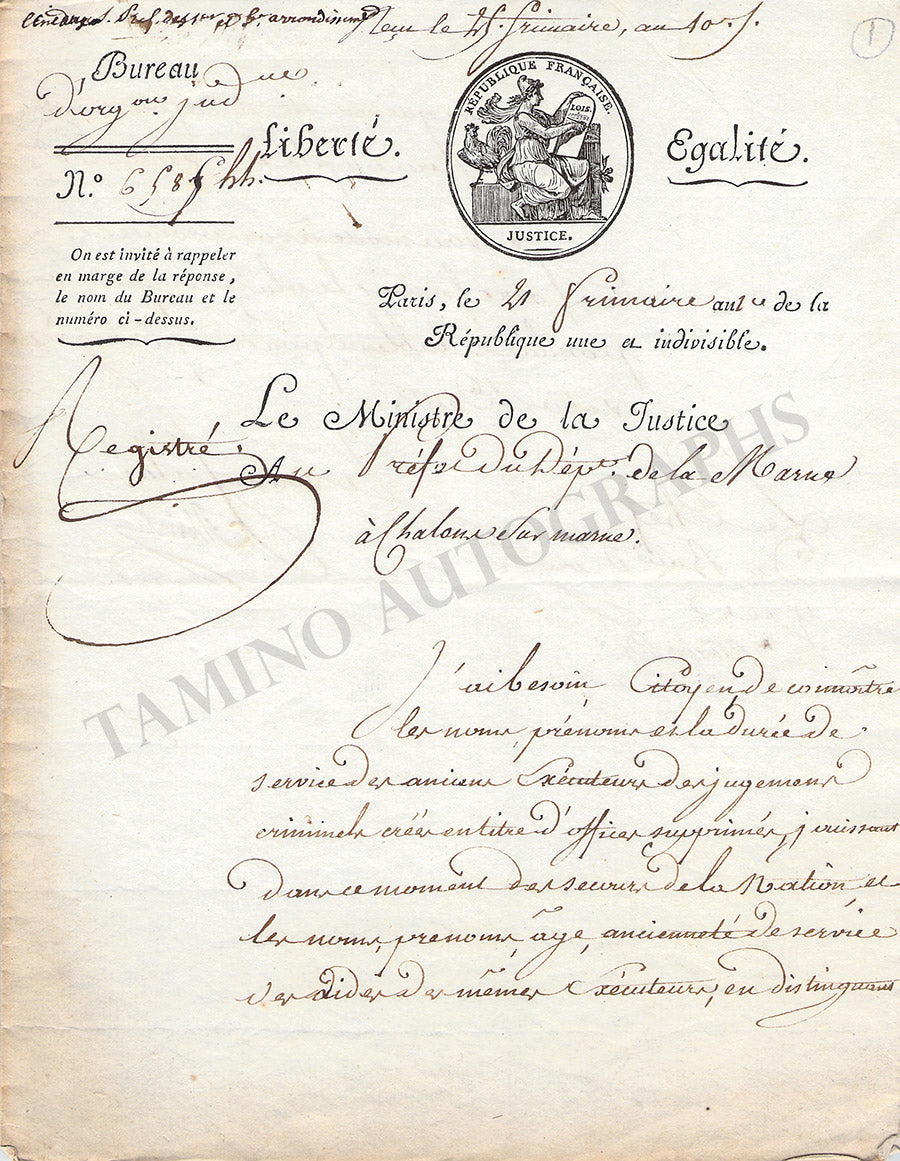 Reçu le 25 frimaire, an 10.
1
Bureau
d'org.on jud.que
N.º 6585 hh.
Liberté.
RÉPUBLIQUE FRANÇAISE.
LOIS.
JUSTICE.
Egalité.
On est invité à rappeler
en marge de la réponse,
le nom du Bureau et le
numéro ci-dessus.
Paris, le 21 frimaire an de la
République une et indivisible.
Le Ministre de la Justice
Registré.
Au Préfet du Dépt. de la Marne
à Chalons Sur marne.
J'ai besoin Citoyen, de connoître
les noms, prénoms et la durée de
service des anciens Exécuteurs des jugemens
criminels créés en titre d'offices supprimés, jouissant
dans ce moment des secours de la Nation et
les noms, prenoms, âge, ancienneté de service
des aides des mêmes Exécuteurs, en distinguant
TAMINO AUTOGRAPHS